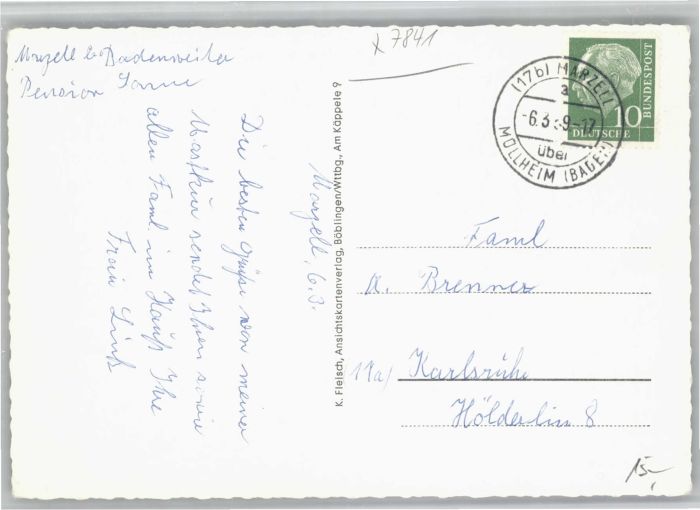 Marzell b/ Badenweiler
Pension Sonne
x 7841
Marzell, 6.3.
Die besten Grüße von meiner
Mastkur sendet Ihnen sowie
allen Faml. im Hauß Ihre
Frau Linß
K. Fleisch, Ansichtskartenverlag, Böblingen/Wttbg., Am Käppele 9
(17b) MARZELL
a
-6.3.59-17
über
MÜLLHEIM (BADEN)
10
DEUTSCHE
BUNDESPOST
Faml
A. Brenner
17a) Karlsruhe
Hölderlin 8
15,-